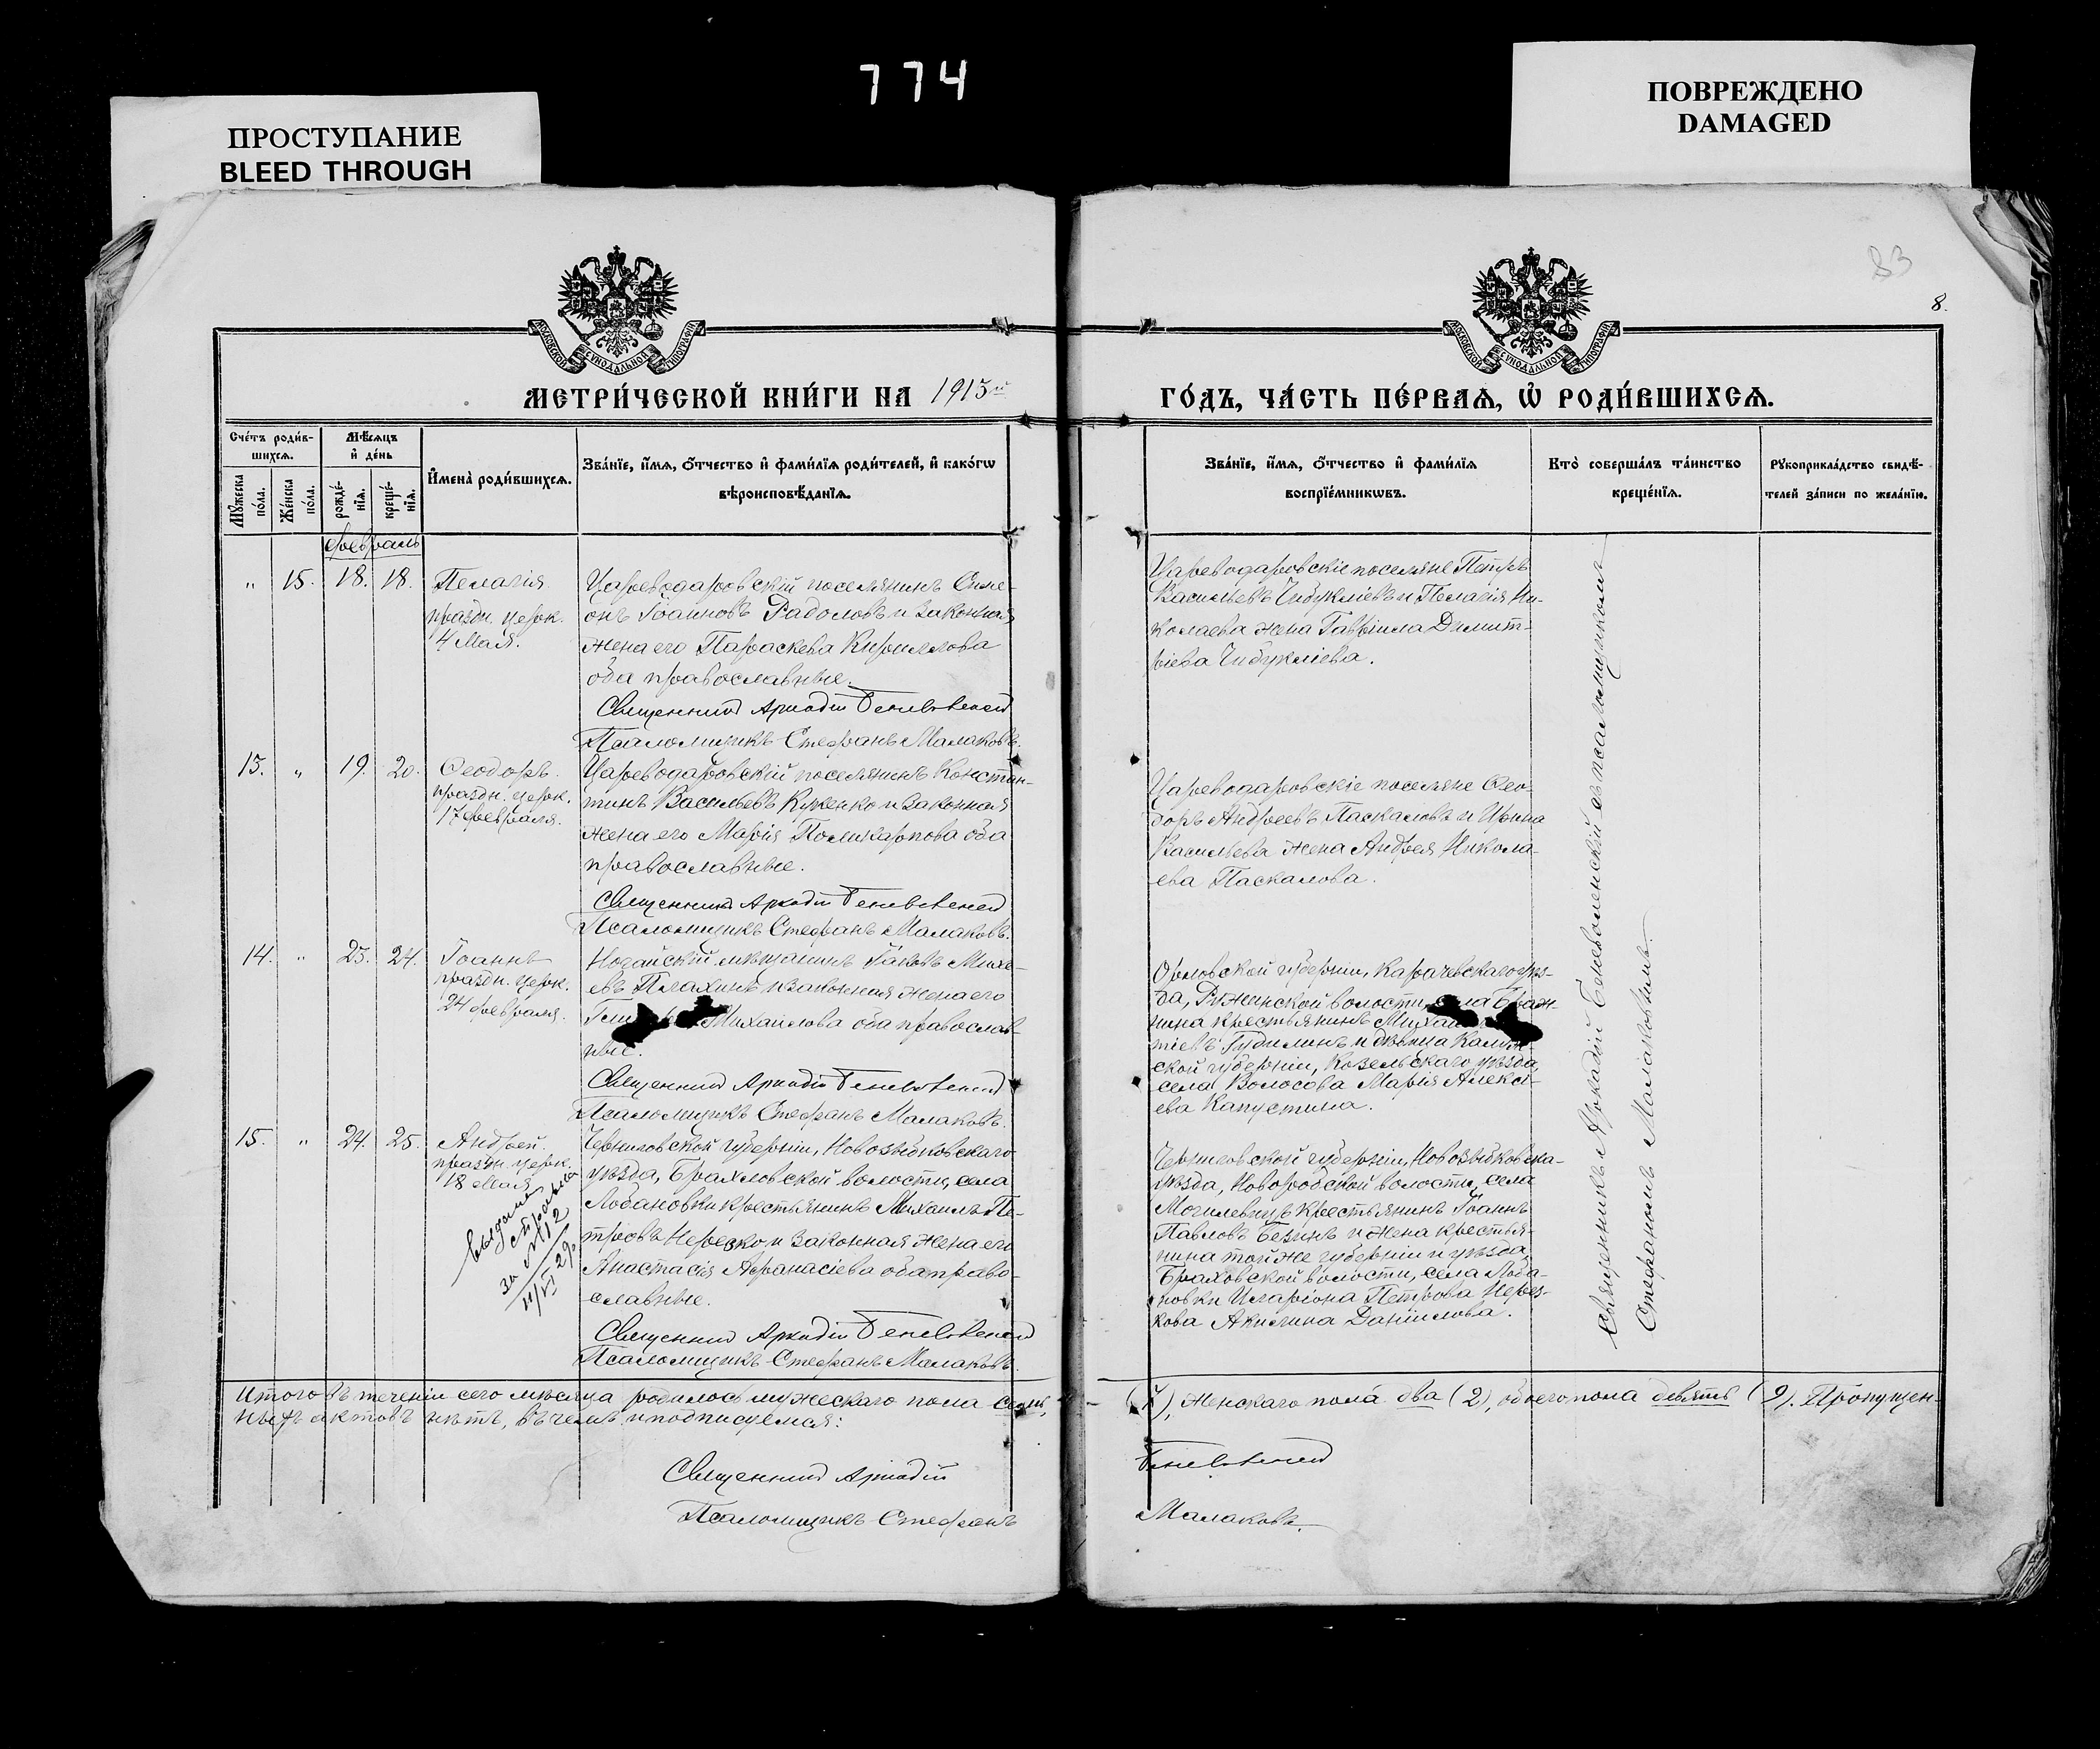 774
ПРОСТУПАНИЕ
BLEED THROUGH
ПОВРЕЖДЕНО
DAMAGED
83
8.
МОСКОВСКОЙ СѴНОДАЛЬНОЙ ТИПОГРАФІИ
МОСКОВСКОЙ СѴНОДАЛЬНОЙ ТИПОГРАФІИ
МЕТРИ́ЧЕСКОЙ КНИ́ГИ НА 1915й
ГО́ДЪ, ЧА́СТЬ ПЕ́РВАѦ, Ѡ҆ РОДИ́ВШИХСѦ.
Сче́тъ роди́в-
шихсѧ.
Мѣ́сѧцъ
и҆ де́нь
Мꙋ́жеска по́ла.
Же́нска по́ла.
рожде́-
нїѧ.
креще́-
нїѧ.
И҆мена̀ роди́вшихсѧ.
Зва́нїе, и҆́мѧ, ѻ҆́тчество и҆ фами́лїѧ роди́телей, и҆ како́гѡ
вѣроисповѣ́данїѧ.
Зва́нїе, и҆́мѧ, ѻ҆́тчество и҆ фами́лїѧ
воспрїе́мникѡвъ.
Кто̀ соверша́лъ та́инство
креще́нїѧ.
Рꙋкоприкла́дство свидѣ́-
телей за́писи по жела́нїю.
февраль
„ 15. 18. 18. Пелагія
праздн. церк.
4 Мая.
Цареводаровскій поселянинъ Симе-
онъ Іоанновъ Радоловъ и законная
жена его Параскева Кириллова
оба православные.
Священникъ Аркадій Беневоленскій
Псаломщикъ Стефанъ Малаковъ.
Цареводаровскіе поселяне Петръ
Васильевъ Чибукліевъ и Пелагія Ни-
колаева жена Гавріила Димит-
ріева Чибукліева.
13. „ 19. 20. Ѳеодоръ
праздн. церк.
17 февраля.
Цареводаровскій поселянинъ Констан-
тинъ Васильевъ Куженко и законная
жена его Марія Поликарпова оба
православные.
Священникъ Аркадій Беневоленскій
Псаломщикъ Стефанъ Малаковъ.
Цареводаровскіе поселяне Ѳео-
доръ Андреевъ Паскаловъ и
Васильева жена Андрея Никола-
ева Паскалова.
14. „ 23. 24. Іоаннъ
праздн. церк.
24 февраля.
Ногайскій мѣщанинъ Іаковъ Михе-
евъ Плахинъ и законная жена его
Михайлова оба православ-
ные.
Священникъ Аркадій Беневоленскій
Псаломщикъ Стефанъ Малаковъ.
Орловской губерніи, Карачевскаго уѣз-
да, волости, села
крестьянинъ
и дѣвица Калуж-
ской губерніи, Козельскаго уѣзда,
села Волосова Марія Алексі-
ева Капустина.
15. „ 24. 25. Андрей
праздн. церк.
18 Мая
за № 12
Черниговской губерніи, Новозыбковскаго
уѣзда, Брахловской волости, села
Лобановки крестьянинъ Михаилъ Пе-
тровъ и законная жена его
Анастасія Аѳанасіева оба право-
славные.
Священникъ Аркадій Беневоленскій
Псаломщикъ Стефанъ Малаковъ.
Черниговской губерніи, Новозыбковска-
уѣзда, волости, села
Могилевцъ крестьянинъ Іоаннъ
Павловъ Безинъ и жена крестья-
нина той же губерніи и уѣзда,
волости, села Лоба-
новки Иларіона Петрова
Акилина Даніилова.
Священникъ Аркадій Беневоленскій съ псаломщикомъ
Стефаномъ Малаковымъ.
Итого въ теченіи сего мѣсяца родилось мужескаго пола семь
(7), женскаго пола два (2), обоего пола девять (9). Пропущен-
ныхъ актовъ нѣтъ, въ чемъ и подписуемся:
Священникъ Аркадій Беневоленскій
Псаломщикъ Стефанъ Малаковъ.